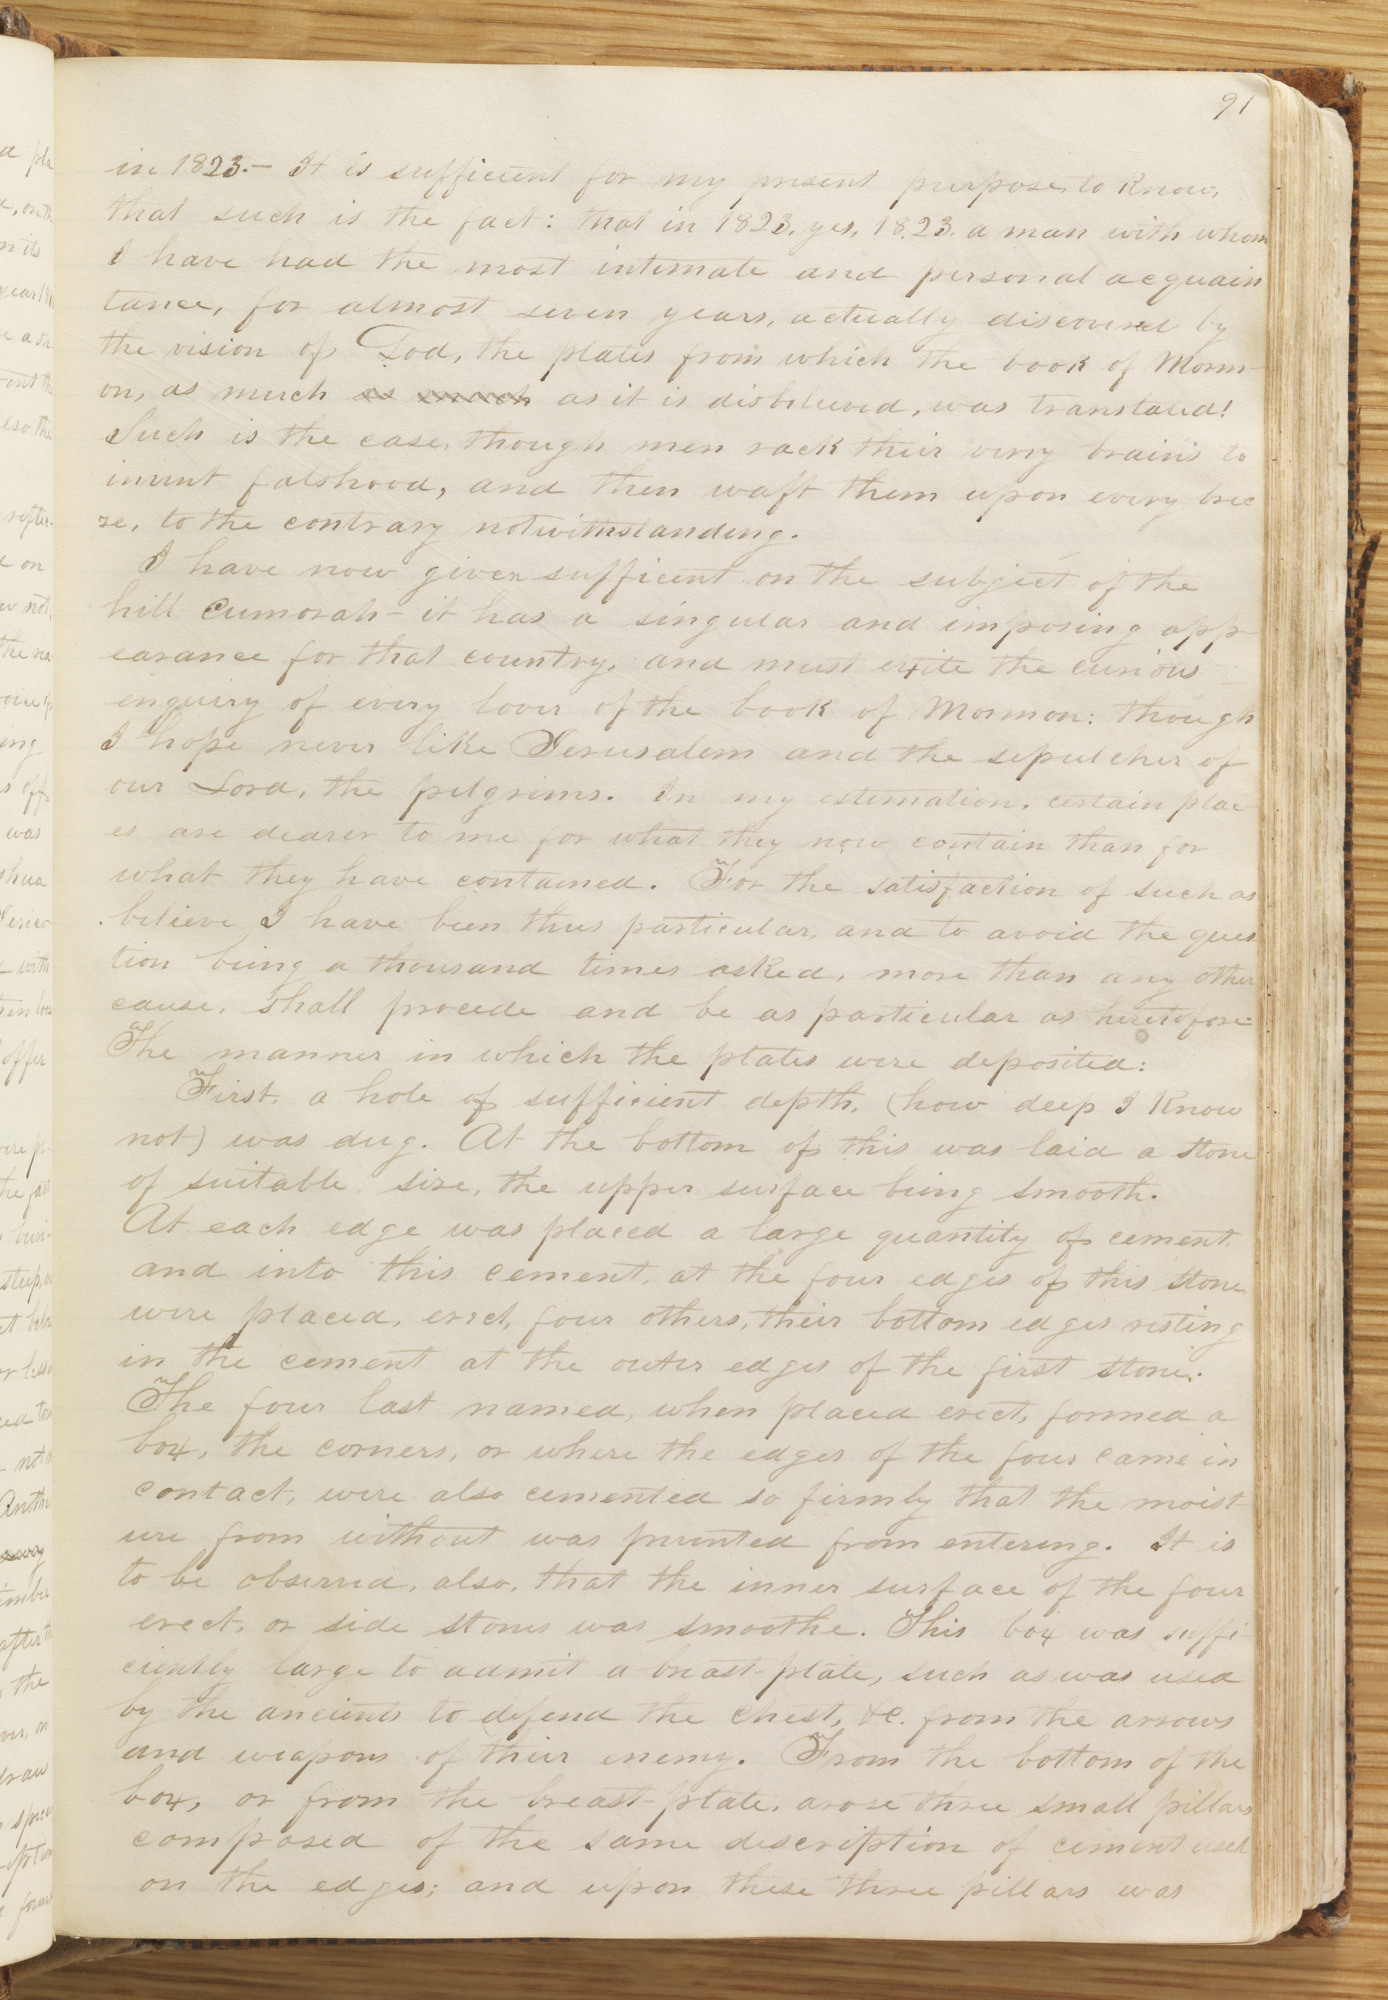 91
in 1823.— It is sufficient for my present purpose, to know,
that such is the fact: that in 1823, yes, 1823, a man with whom
I have had the most intimate and personal acquain
tance, for almost seven years, actually discovered by
the vision of God, the plates from which the book of Morm-
on, as much as much as it is disbelieved, was translated!
Such is the case, though men rack their very brains to
invent falshood, and then waft them upon every bree
ze, to the contrary notwithstanding.
I have now given sufficent on the subject of the
hill Cumorah— it has a singular and imposing app-
earance for that country, and must exite the curious
enquiry of every lover of the book of Mormon: though
I hope never like Jerusalem and the sepulcher of
our Lord, the pilgrims. In my estimation, certain plac-
es are dearer to me for what they now contain than for
what they have contained. For the satisfaction of such as
believe I have been thus particular, and to avoid the ques
tion being a thousand times asked, more than any other
cause, shall procede and be as particular as heretofore.
The manner in which the plates were deposited:
First, a hole of sufficient depth, (how deep I know
not) was dug. At the bottom of this was laid a stone
of suitable size, the upper surface being smooth.
At each edge was placed a large quantity of cement,
and into this cement, at the four edges of this stone,
were placed, erect, four others, their bottom edges resting
in the cement at the outer edges of the first stone.
The four last named, when placed erect, formed a
box, the corners, or where the edges of the four came in
contact, were also cemented so firmly that the moist
ure from without was prevented from entering. It is
to be observed, also, that the inner surface of the four
erect, or side stones was smoothe. This box was suffi-
ciently large to admit a breast-plate, such as was used
by the ancients to defend the chest, &c. from the arrows
and weapons of their enemy. From the bottom of the
box, or from the breast-plate, arose three small pillars
composed of the same description of cement used
on the edges; and upon these three pillars was